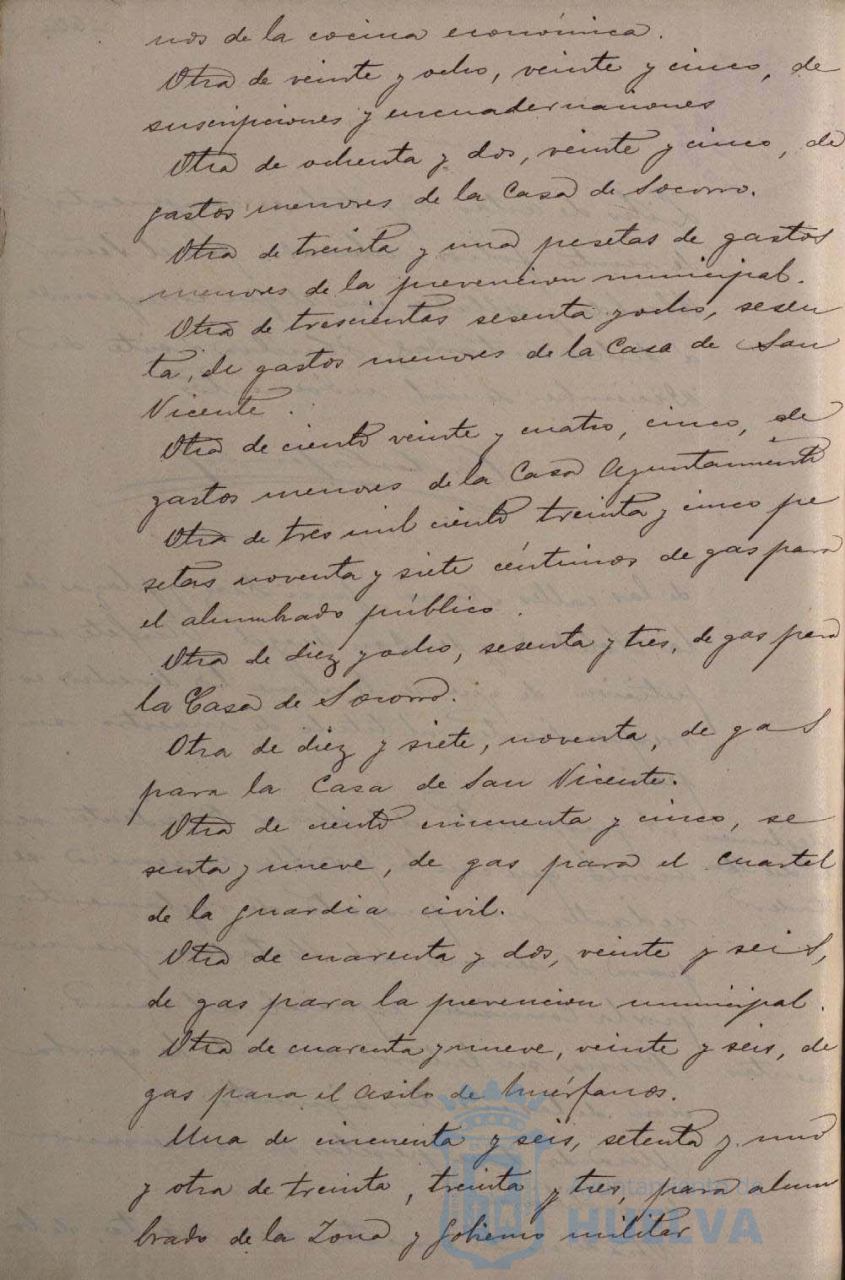 nos de la cocina económica.
Otra de veinte y ocho, veinte y cinco, de
suscripciones y encuadernaciones
Otra de ochenta y dos, veinte y cinco, de
gastos menores de la Casa de Socorro.
Otra de treinta y una pesetas de gastos
menores de la prevencion municipal.
Otra de trescientas sesenta y ocho, sesen
ta, de gastos menores de la Casa de San
Vicente.
Otra de ciento veinte y cuatro, cinco, de
gastos menores de la Casa Ayuntamiento
Otra de tres mil ciento treinta y cinco pe
setas noventa y siete céntimos de gas para
el alumbrado público.
Otra de diez y ocho, sesenta y tres, de gas para
la Casa de Socorro.
Otra de diez y siete, noventa, de gas
para la Casa de San Vicente.
Otra de ciento cincuenta y cinco, se
senta y nueve, de gas para el cuartel
de la guardia civil.
Otra de cuarenta y dos, veinte y seis,
de gas para la prevencion municipal.
Otra de cuarenta y nueve, veinte y seis, de
gas para el asilo de huérfanos.
Una de cincuenta y seis, setenta y uno
y otra de treinta, treinta y tres, para alum
brado de la Zona y Gobierno militar
Ayuntamiento de
HUELVA